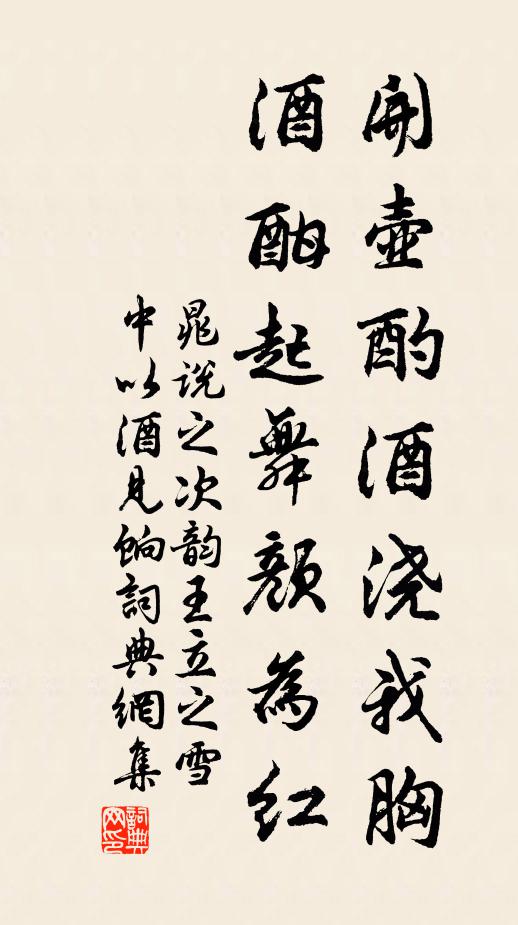 開壺酌酒浇我胸
酒酣起舞顏為红
晁說之次韵王立之雪
中以酒見餉詞典網集
詞典网印